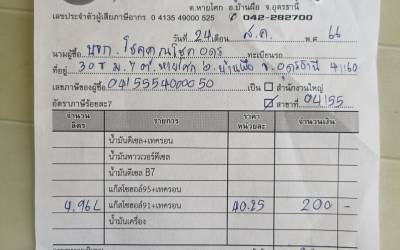 ต.หายโศก อ.บ้านผือ จ.อุดรธานี
เลขประจำตัวผู้เสียภาษีอากร 0 4135 49000 525 042-282700
วันที่ 24 เดือน ส.ค. พ.ศ. 66
นามผู้ซื้อ บจก. โชคคูณโชค อุดร ทะเบียนรถ
ที่อยู่ 308 ม.7 ต.หายโศก อ.บ้านผือ จ.อุดรธานี 41160
เลขภาษีของผู้ซื้อ เป็น สำนักงานใหญ่
อัตราภาษีร้อยละ7 สาขาที่ 04155
จำนวน ลิตร รายการ ราคา หน่วยละ จำนวนเงิน
น้ำมันดีเซล+เทครอน
น้ำมันพาวเวอร์ดีเซล
น้ำมันดีเซล B7
แก๊สโซฮอล์95+เทครอน
4.96L แก๊สโซฮอล์91+เทครอน 40.25 200 -
น้ำมันเครื่อง